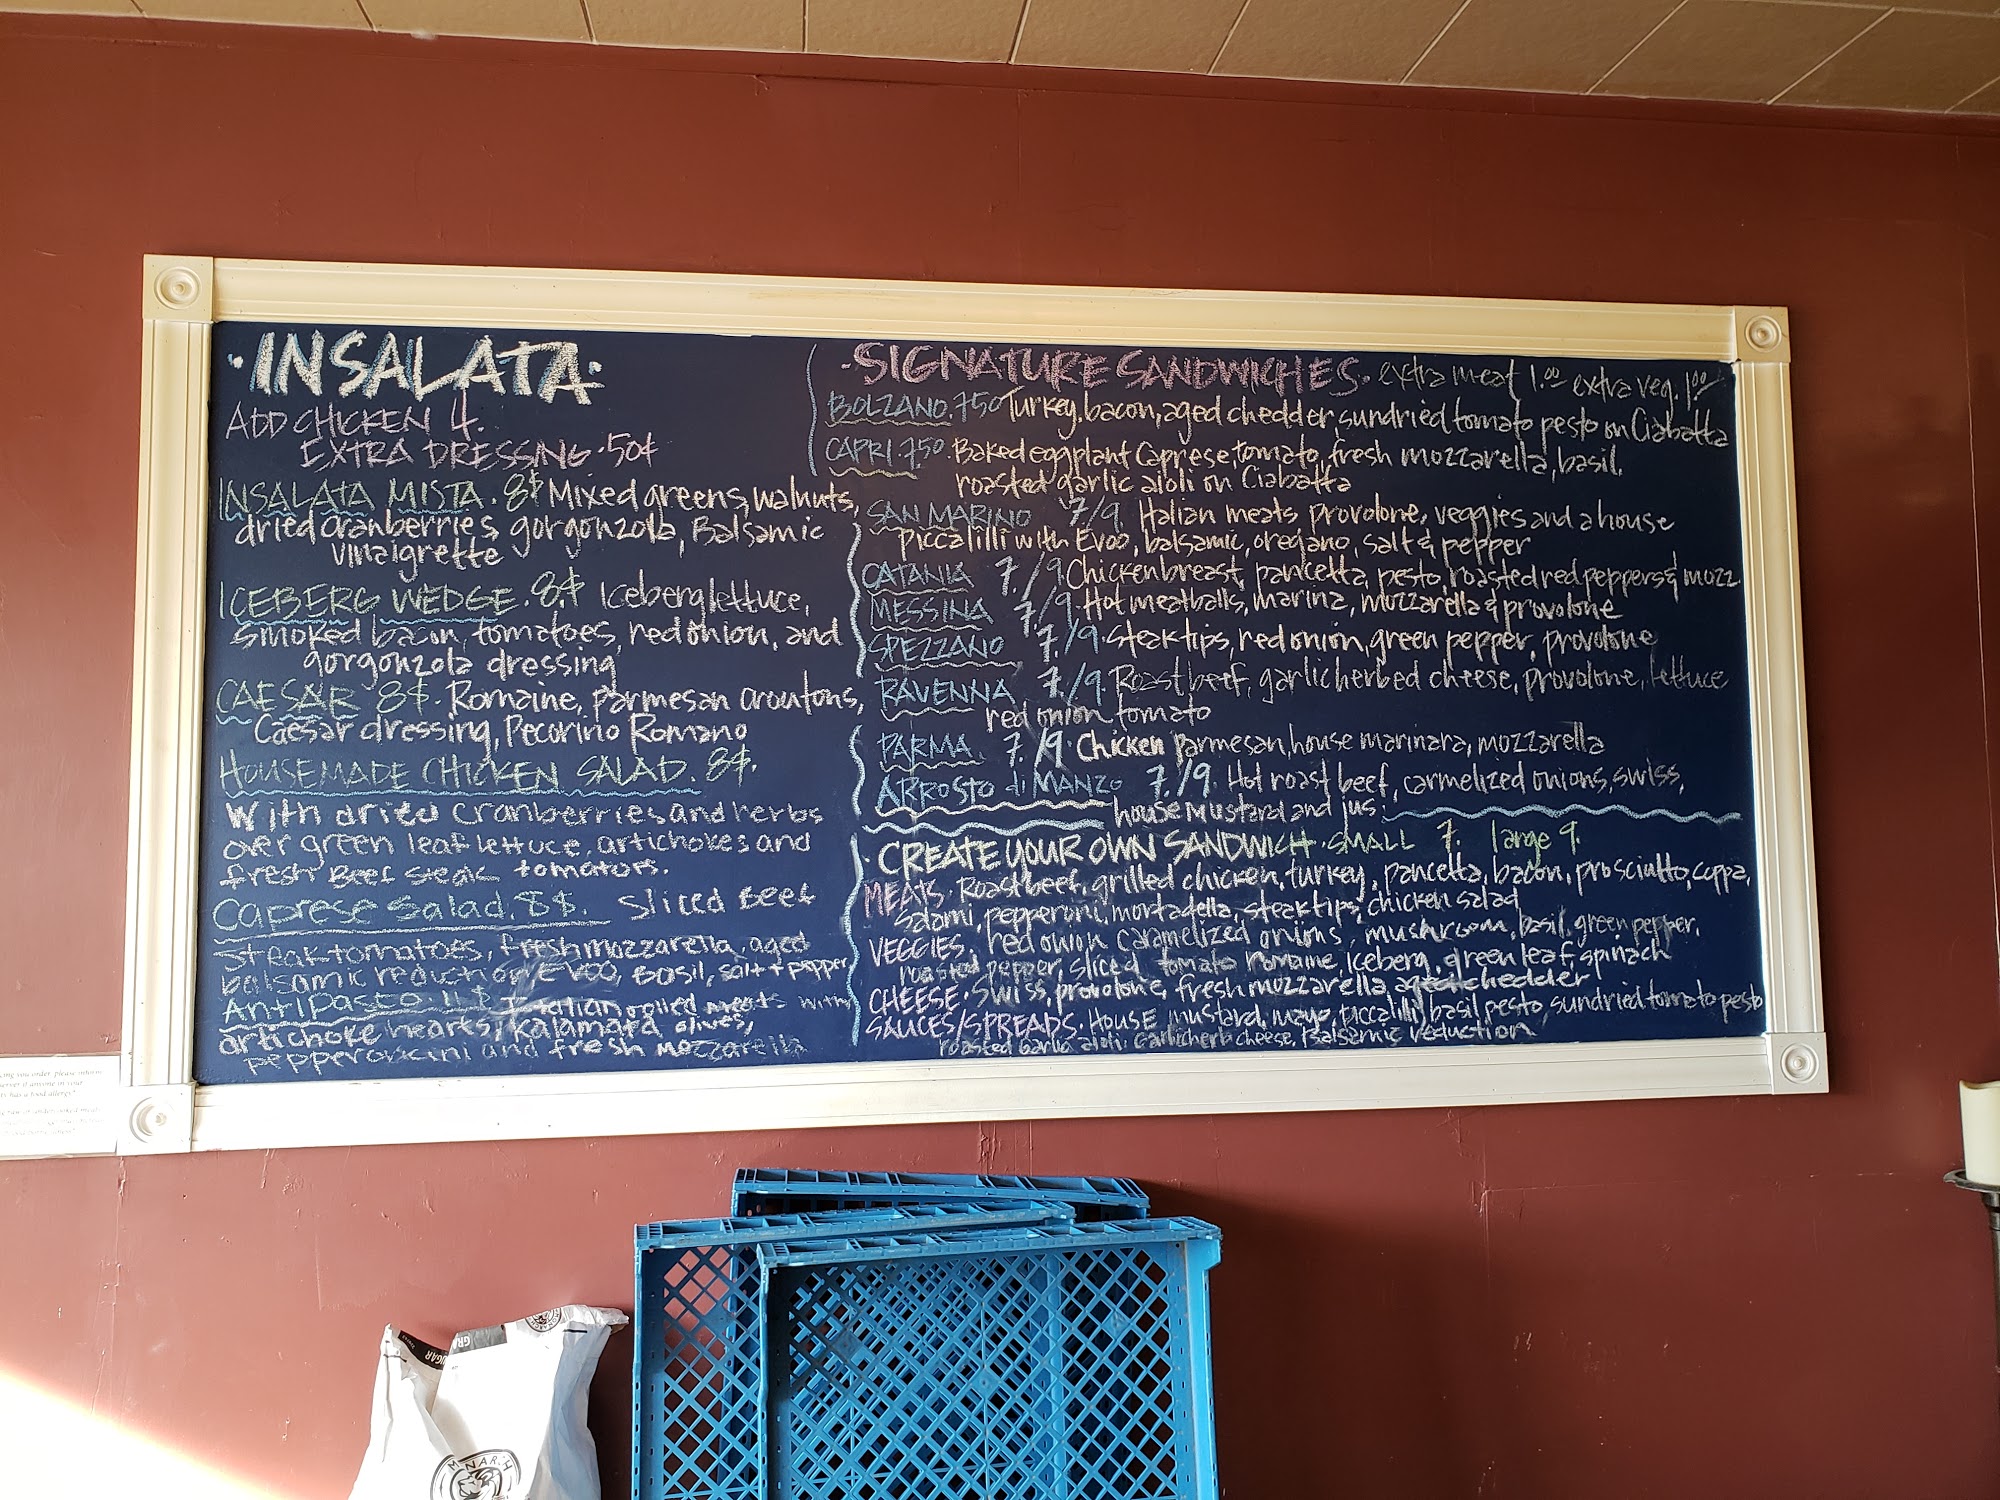 ·INSALATA·
ADD CHICKEN 4.
EXTRA DRESSING .50¢
INSALATA MISTA. 8$ Mixed greens, walnuts,
dried cranberries, gorgonzola, Balsamic
vinaigrette
ICEBERG WEDGE. 8.$ Iceberg lettuce,
smoked bacon, tomatoes, red onion, and
gorgonzola dressing
CAESAR 8$. Romaine, parmesan croutons,
Caesar dressing, Pecorino Romano
HOUSEMADE CHICKEN SALAD. 8$.
With dried cranberries and herbs
over green leaf lettuce, artichokes and
fresh Beef steak tomators.
Caprese Salad. 8$. Sliced Beef
steak tomatoes, fresh mozzarella, aged
balsamic reduction EVOO, Basil, salt + pepper
Antipasto 11$ Italian rolled meats with
artichoke hearts, kalamata olives,
pepperoncini and fresh mozzarella
·SIGNATURE SANDWICHES· extra meat 1.00 extra veg. 1.00
BOLZANO. 7.50 Turkey, bacon, aged chedder sundried tomato pesto on Ciabatta
CAPRI. 7.50. Baked eggplant Caprese, tomato, fresh mozzarella, basil,
roasted garlic aioli on Ciabatta
SAN MARINO 7/9. Italian meats, provolone, veggies and a house
piccalilli with Evoo, balsamic, oregano, salt & pepper
CATANIA 7./9. Chicken breast, pancetta, pesto, roasted red peppers & mozz.
MESSINA 7./9. Hot meatballs, marina, mozzarella & provolone
SPEZZANO 7./9 Steak tips, red onion, green pepper, provolone
RAVENNA 7./9. Roast beef, garlic herbed cheese, provolone, lettuce
red onion tomato
PARMA. 7./9. Chicken parmesan, house marinara, mozzarella
ARROSTO di MANZO 7./9. Hot roast beef, carmelized onions, swiss,
house Mustard and jus.
·CREATE YOUR OWN SANDWICH·SMALL 7. large 9.
MEATS. Roast beef, grilled chicken, turkey, pancetta, bacon, prosciutto, coppa,
Salami, pepperoni, mortadella, steak tips, chicken salad
VEGGIES. red onion caramelized onions, mushroom, basil, green pepper,
roasted pepper, sliced tomato romaine, Iceberg, green leaf, spinach
CHEESE. Swiss, provolone, fresh mozzarella, aged chedder
SAUCES/SPREADS. House mustard, mayo, piccalilli, basil pesto, sundried tomato pesto
roasted garlic aioli, Garlic herb cheese, Balsamic reduction
cing you order, please inform
server if anyone in your
has a food allergy."
GRA
UGAR
MONARCH